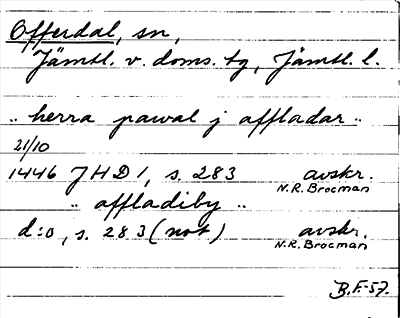 Offerdal, sn,
Jämtl. v. doms. tg, Jämtl. l.
„ herra pawal j affladar „
21/10
1446 JHD 1, s. 283 avskr.
N.R. Brocman
„ affladiby „
d:o, s. 283 (not) avskr.
N.R. Brocman
B.F.-57.